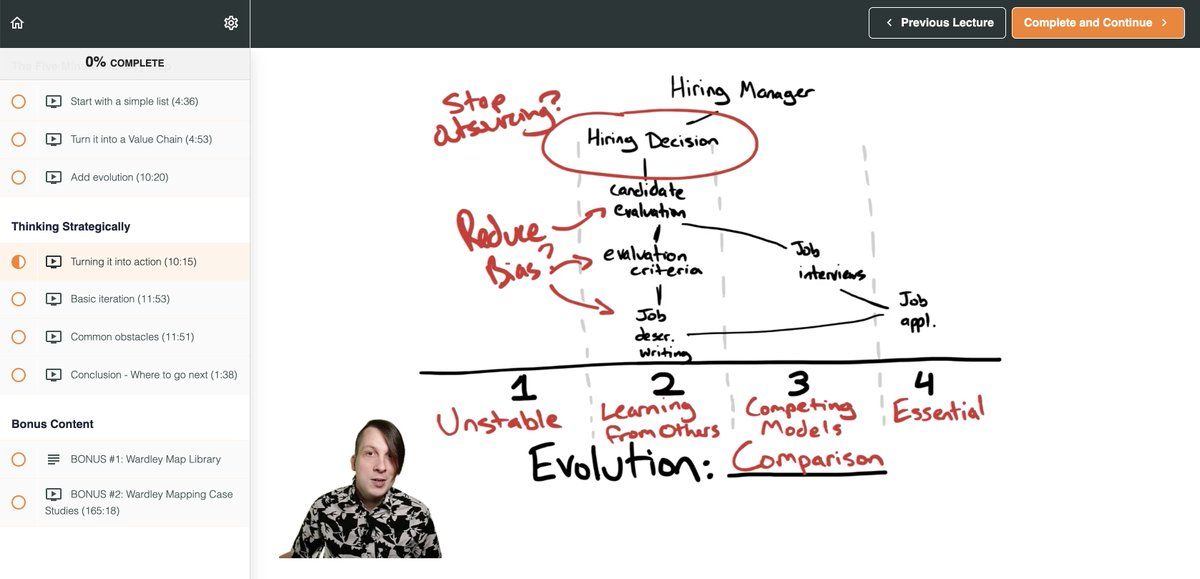 Previous Lecture
Complete and Continue
0% COMPLETE
Start with a simple list (4:36)
Turn it into a Value Chain (4:53)
Add evolution (10:20)
Thinking Strategically
Turning it into action (10:15)
Basic iteration (11:53)
Common obstacles (11:51)
Conclusion - Where to go next (1:38)
Bonus Content
BONUS #1: Wardley Map Library
BONUS #2: Wardley Mapping Case
Studies (165:18)
Stop
outsourcing?
Hiring Manager
Hiring Decision
candidate
evaluation
Reduce
Bias?
evaluation
criteria
Job
interviews
Job
descr.
writing
Job
appl.
1
2
3
4
Unstable
Learning
from Others
Competing
Models
Essential
Evolution: Comparison